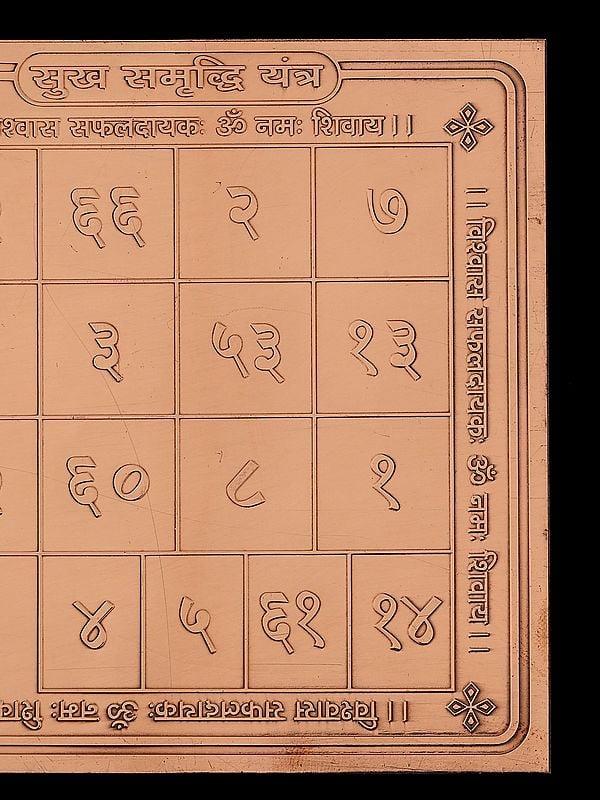 सुख समृद्धि यंत्र
सफलदायकः ॐ नमः शिवाय।।
६६ २ ७
३ ५३ १३
६० ८ १
४ ५ ६१ १४
।। विश्वास सफलदायकः ॐ नमः शिवाय।।
।। विश्वास सफलदायकः ॐ नमः